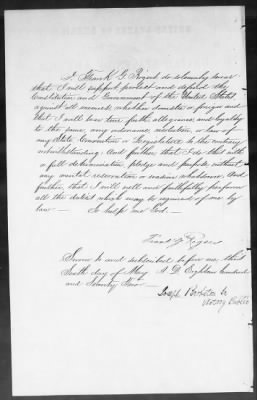 I, Frank G Rogers do solemnly swear
that I will support protect and defend the
Constitution and Government of the United States
against all enemies, whether domestic or foreign and
that I will bear true faith, allegiance, and loyalty
to the same, any ordinance, resolution, or law of
any State Convention or Legislature to the contrary
notwithstanding. And further that I do this with
a full determination, pledge and purpose, without
any mental reservation or evasion whatsoever. And
further, that I will well and faithfully perform
all the duties which may be required of me by
law — So help me God —
Frank G Rogers
Sworn to and subscribed before me, this
day of May A. D. Eighteen hundred
and Seventy Four —
Joseph
Notary Public